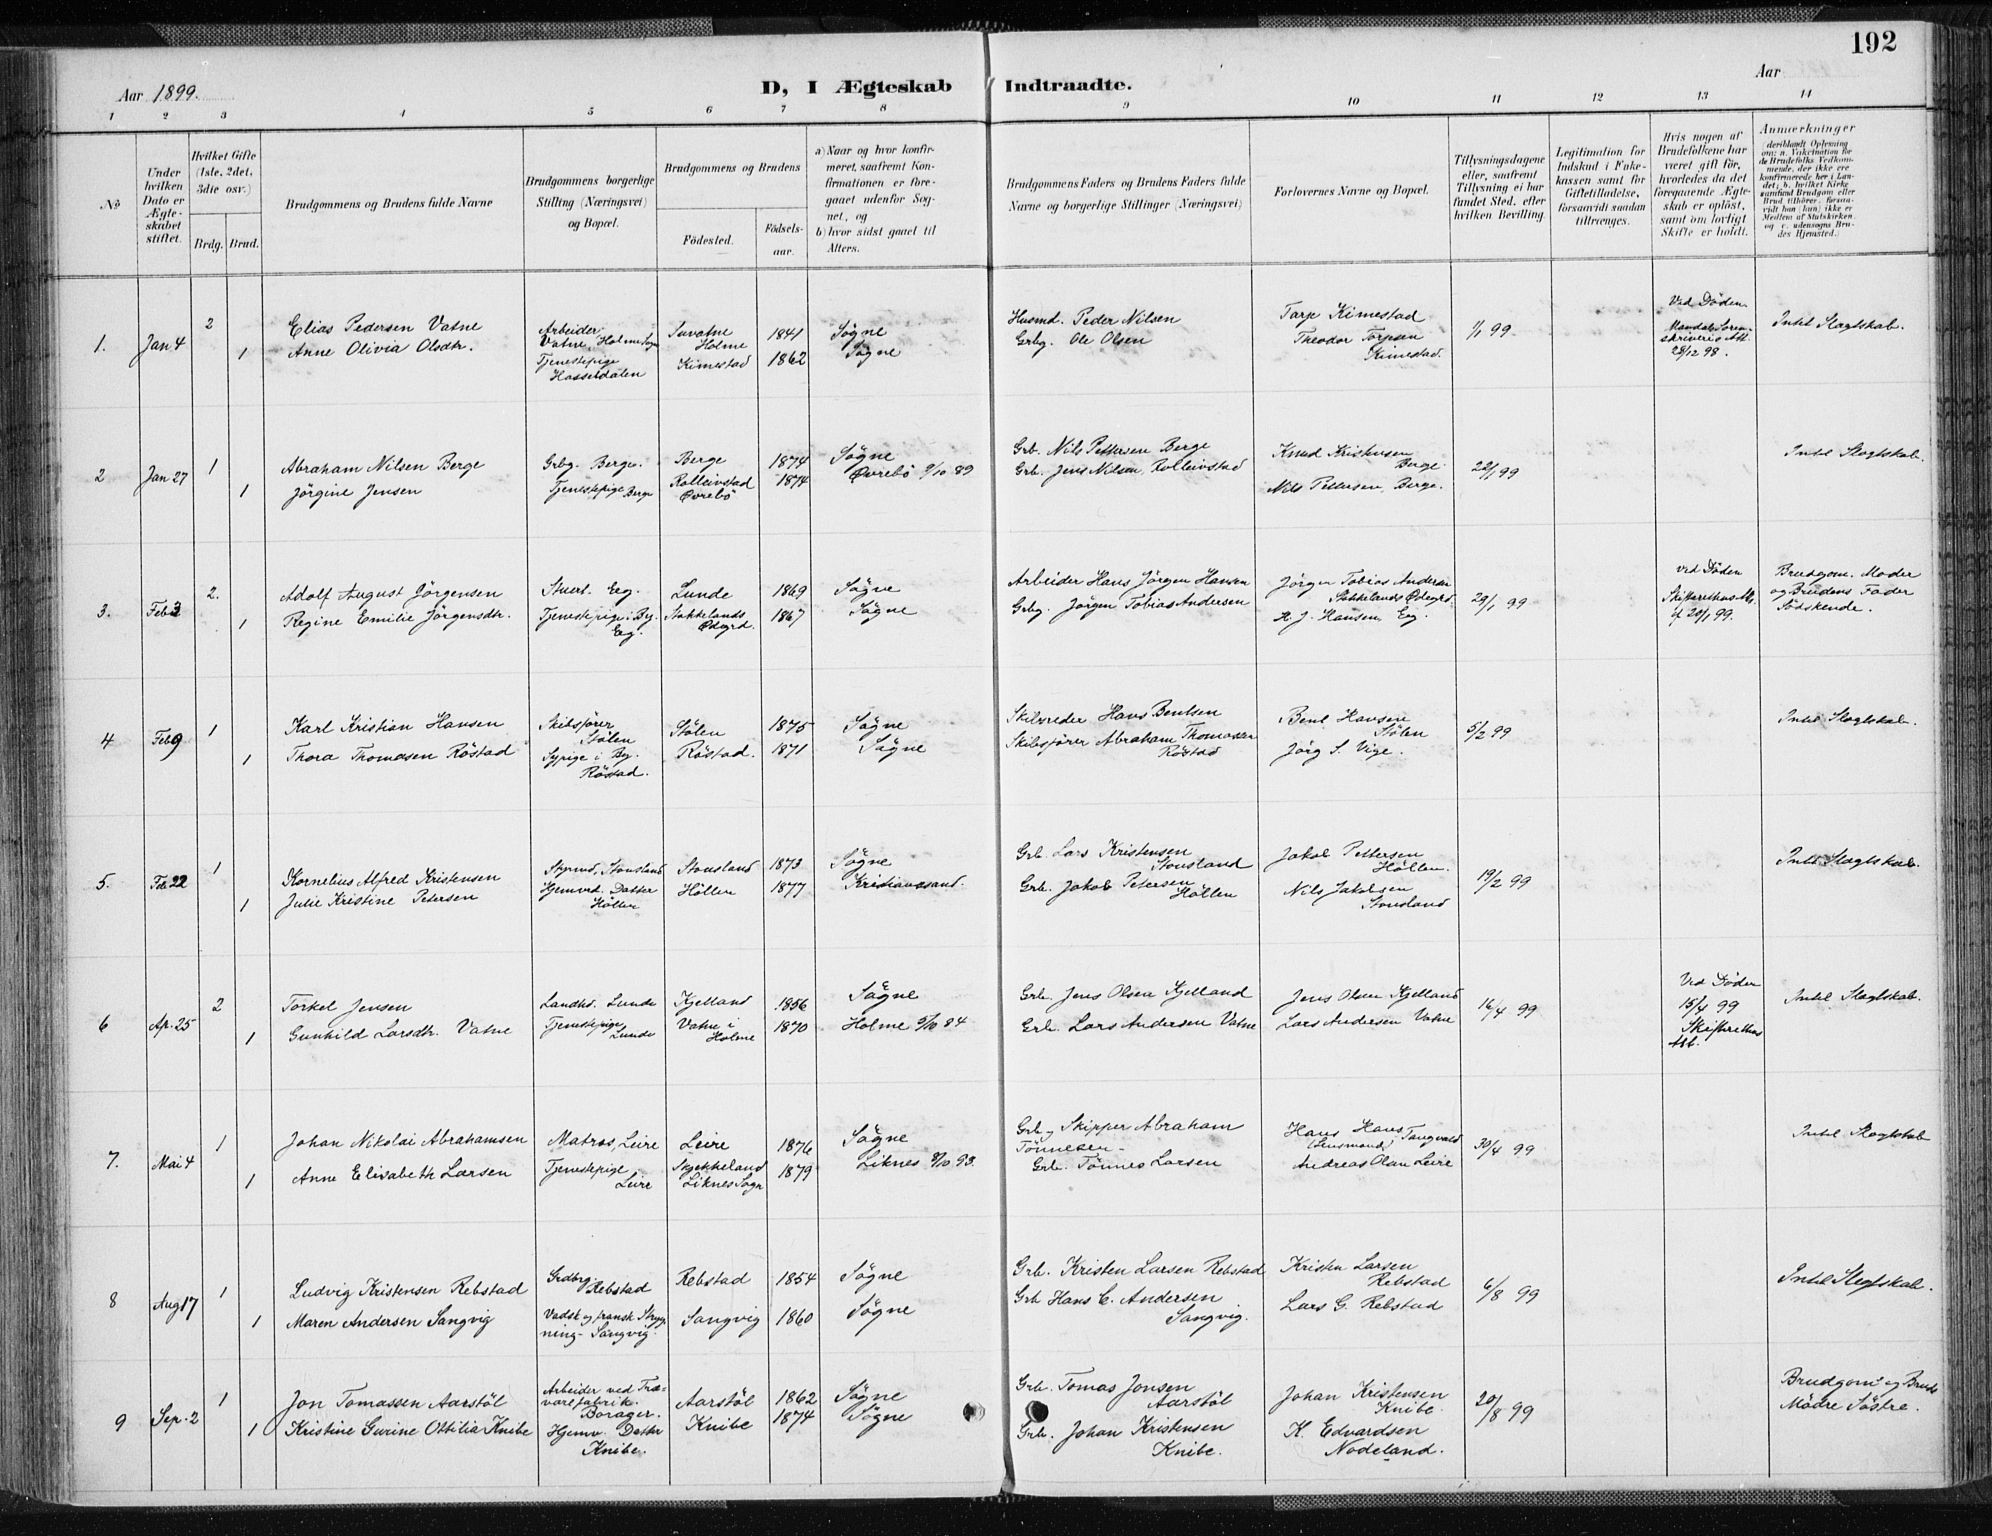 192
Aar 1899.
D, I Ægteskab Indtraadte.
Aar
1 2 3 4 5 6 7 8 9 10 11 12 13 14
No
Under hvilken Dato er Ægteskabet stiftet.
Hvilket Gifte (1ste, 2det, 3die osv.)
Brdg. Brud.
Brudgommens og Brudens fulde Navne
Brudgommens borgerlige Stilling (Næringsvei) og Bopæl.
Brudgommens og Brudens
Födested.
Födselsaar.
a) Naar og hvor konfirmeret, saafremt Konfirmationen er foregaaet udenfor Sognet, og
b) hvor sidst gaaet til Alters.
Brudgommens Faders og Brudens Faders fulde Navne og borgerlige Stillinger (Næringsvei)
Forlovernes Navne og Bopæl.
Tillysningsdagene eller, saafremt Tillysning ei har fundet Sted, efter hvilken Bevilling.
Legitimation for Indskud i Enkekassen samt for Giftetilladelse, forsaavidt saadan tiltrænges.
Hvis nogen af Brudefolkene har været gift för, hvorledes da det foregaaende Ægteskab er oplöst, samt om lovligt Skifte er holdt.
Anmærkninger
(deriblandt Oplysning om: a. Vakcination for de Brudefolks Vedkommende, der ikke ere konfirmerede her i Landet; b. hvilket Kirkesamfund Brudgom eller Brud tilhörer, forsaavidt han (hun) ikke er Medlem af Statskirken, og c. udensogns Brudes Hjemsted.)
1. Jan 4 2
1
Elias Pedersen Vatne
Anne Olivia Olsdtr.
Arbeider
Vatne, Holme Sogn
Tjenestepige
Hasseldalen
Suvatne
Holme
Kimestad
1841
1862
Søgne
Søgne
Husmd. Peder Nilsen
Grbg. Ole Olsen
Tarje Kimestad
Theodor Torjsen
Kimestad.
1/1 99
Ved Döden
28/12 98.
Intet Slagtskab.
2 Jan 27 1
1
Abraham Nilsen Berge
Jörgine Jensen
Grbg. Berge.
Tjenestepige Berge
Berge
Rolleivstad
Øvrebö
1874
1874
Søgne
Øvrebö 9/10 89
Grb. Nils Pettersen Berge
Grb. Jens Nilsen Rolleivstad
Knud Kristensen
Berge.
Nils Pettersen, Berge.
22/1 99
Intet Slagtskab.
3. Feb 3 2.
1
Adolf August Jörgensen
Regine Emilie Jörgensdtr.
Stuert. Eeg.
Tjenestepige i By.
Eeg.
Lunde
Stokkelands
Ødegrd.
1869
1867
Søgne
Søgne
Arbeider Hans Jörgen Hansen
Grbg. Jörgen Tobias Andersen
Jörgen Tobias Andersen
Stokkelands Ødegrd.
H. J. Hansen, Eeg.
29/1 99
ved Döden
Skifterettens Att.
af 20/1 99.
Brudgom. Moder
og Brudens Fader
Södskende.
4 Feb 9 1
1
Karl Kristian Hansen
Thora Thomasen Röstad
Skibsförer
Stölen
Sypige i By.
Röstad.
Stölen
Röstad.
1875
1871
Søgne
Søgne
Skibsreder Hans Bentsen
Skibsförer Abraham Thomasen
Röstad
Bent Hansen
Stölen
Jörg S. Vige.
5/2 99
Intet Slagtskab.
5. Feb 22 1
1
Kornelius Alfred Kristensen
Julie Kristine Petersen
Styrmd, Stousland
Hjemved. Datter
Höllen
Stousland
Höllen
1873
1877
Søgne
Kristianssand.
Grb. Lars Kristensen
Stousland
Grb. Jakob Petersen
Höllen
Jakob Pettersen
Höllen.
Nils Jakobsen
Stousland
19/2 99
Intet Slagtskab.
6 Ap. 25 2
1
Torkel Jensen
Gunhild Larsdtr. Vatne
Landhd. Lunde
Tjenestepige
Lunde
Kjelland
Vatne i
Holme
1856
1870
Søgne
Holme 5/10 84
Grb. Jens Olsen Kjelland
Grb. Lars Andersen Vatne
Jens Olsen Kjelland
Lars Andersen Vatne
16/4 99
Ved Döden
15/4 99
Skifterettens
Att.
Intet Slagtskab.
7. Mai 4 1
1
Johan Nikolai Abrahamsen
Anne Elisabeth Larsen
Matros, Leire
Tjenestepige
Leire
Leire
Stykkeland
Liknes Sogn
1876
1879
Søgne
Liknes 8/10 93.
Grb. og Skipper Abraham
Tönnesen -
Grb. Tönnes Larsen
Hans Hans. Tangvald
(Lensmand)
Andreas Olsen Leire
30/4 99
Intet Slagtskab
8 Aug 17 1
1
Ludvig Kristensen Rebstad
Maren Andersen Langvig
Grdbrg.
Rebstad
Vadsk og fransk Strygning - Langvig.
Rebstad
Langvig
1854
1860
Søgne
Søgne
Grb. Kristen Larsen Rebstad
Grb Hans C. Andersen
Langvig.
Kristen Larsen
Rebstad
Lars G. Rebstad
6/8 99
Intet Slegtskab.
9 Sep. 2 1
1
Jon Tomassen Aarstöl
Kristine Gurine Othilia Knibe
Arbeider ved Trævarefabrik.
Borager.
Hjemv. Datter
Knibe.
Aarstöl
Knibe
1862
1874
Søgne
Søgne
Grb. Tomas Jonsen
Aarstöl
Grb. Johan Kristensen
Knibe.
Johan Kristensen
Knibe.
K. Edvardsen
Nodeland.
20/8 99
Brudgoms og Bruds
Mödre Söstre.